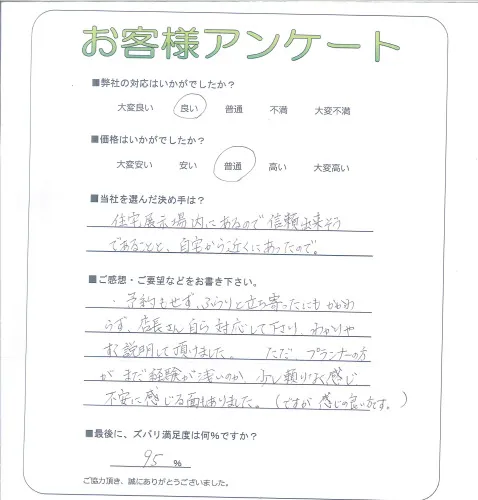 お客様アンケート
■弊社の対応はいかがでしたか？
大変良い 良い 普通 不満 大変不満
■価格はいかがでしたか？
大変安い 安い 普通 高い 大変高い
■当社を選んだ決め手は？
住宅展示場内にあるので信頼出来そう
であることと、自宅から近くにあったので。
■ご感想・ご要望などをお書き下さい。
・予約もせず、ふらりと立ち寄ったにもかかわ
らず、店長さん自ら対応して下さり、わかりや
すく説明して頂けました。 ただ、プランナーの方
が まだ経験が浅いのか、少し頼りなく感じ
不安に感じる面もありました。（ですが 感じの良い方です。）
■最後に、ズバリ満足度は何%ですか？
95 %
ご協力頂き、誠にありがとうございました。